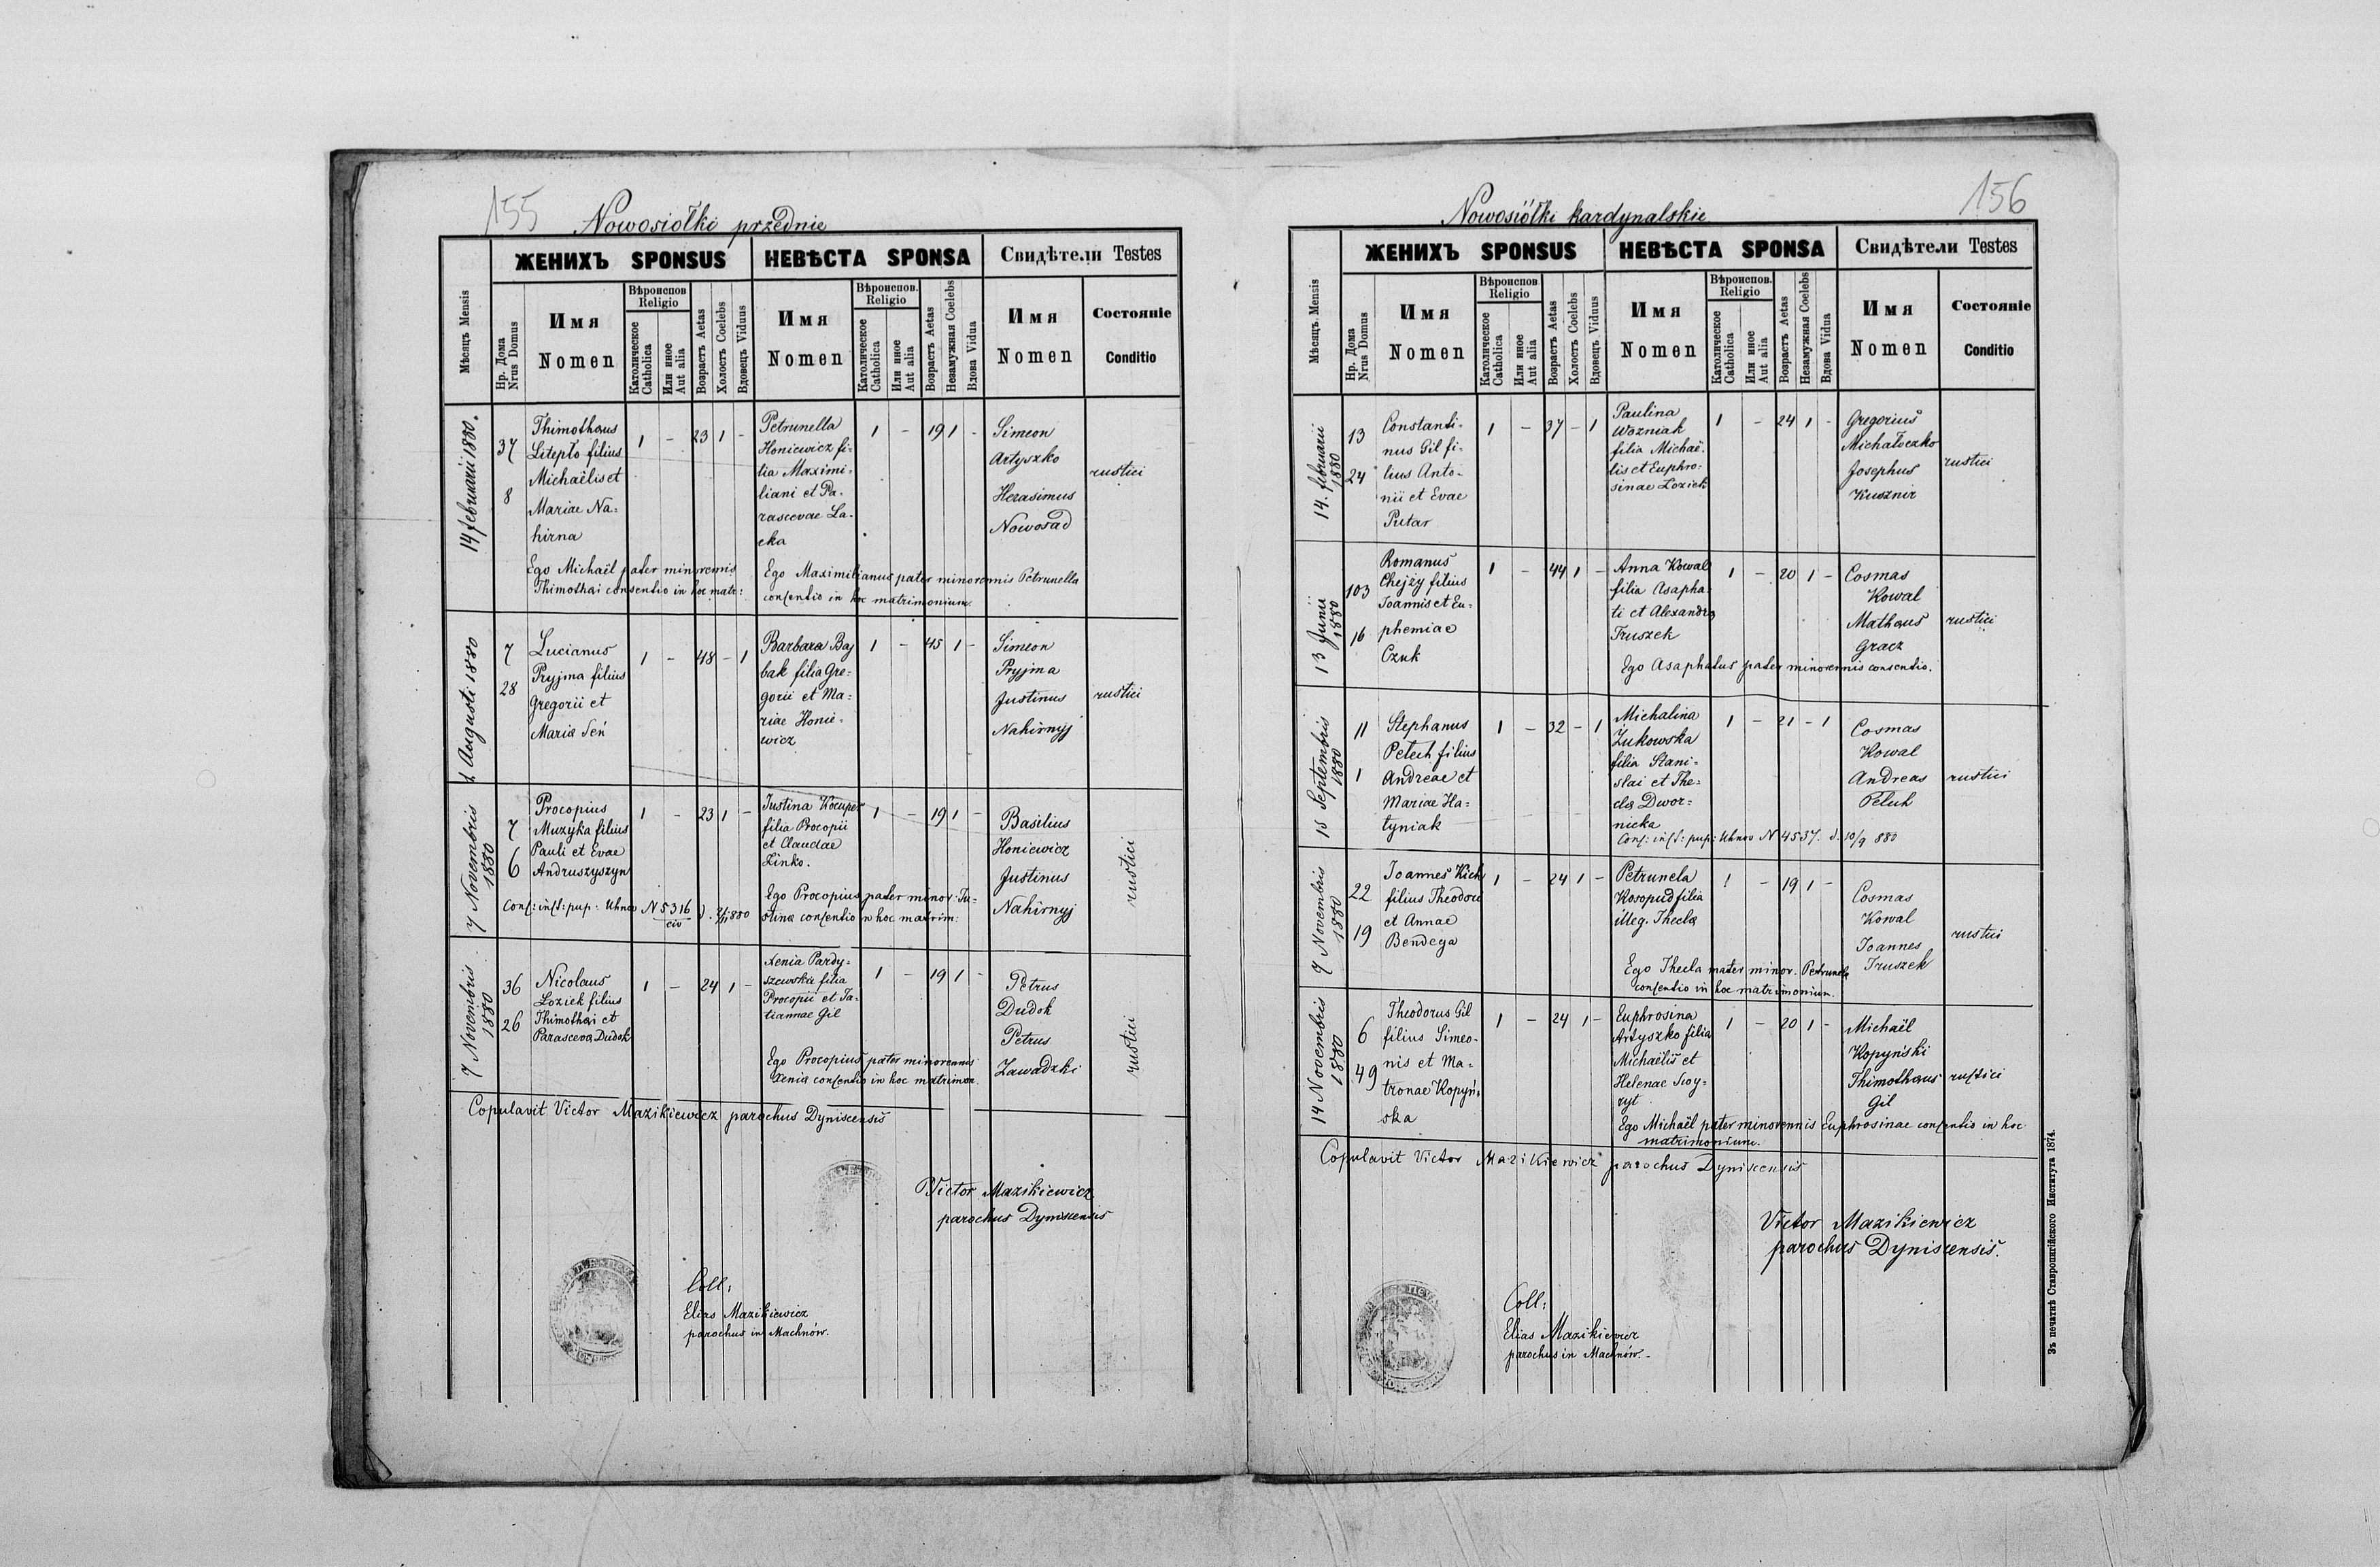 155
Nowosiółki przednie
Мѣсяцъ Mensis
ЖЕНИХЪ SPONSUS
НЕВѢСТА SPONSA
Свидѣтели Testes
Нр. Дома
Nrus Domus
Имя
Nomen
Вѣроиспов.
Religio
Католическое
Catholica
Или иное
Aut alia
Возрастъ Aetas
Холостъ Coelebs
Вдовецъ Viduus
Имя
Nomen
Вѣроиспов.
Religio
Католическое
Catholica
Или иное
Aut alia
Возрастъ Aetas
Незамужная Coelebs
Вдова Vidua
Имя
Nomen
Состояніе
Conditio
14 februarii 1880.
37
8
Thimothaus
Litepło filius
Michaëlis et
Mariae Na=
hirna
1 - 23 1 -
Petrunella
Honiewicz fi-
lia Maximi-
liani et Pa-
rascevae La-
cka
1 - 19 1 -
Simeon
Artyszko
Herasimus
Nowosad
rustici
Ego Michaël pater minorennis
Thimothai consentio in hoc matr:
Ego Maximilianus pater minorennis Petrunella
consentio in hoc matrimonium.
1 Augusti 1880
7
28
Lucianus
Pryjma filius
Gregorii et
Maria Seń
1 - 48 - 1
Barbara Baj
bak filia Gre-
gorii et Ma-
riae Honie-
wicz
1 - 45 1 -
Simeon
Pryjma
Justinus
Nahirnyj
rustici
7 Novembris
1880
7
6
Procopius
Muzyka filius
Pauli et Evae
Andruszyszyn
1 - 23 1 -
Justina Kocuper
filia Procopii
et Claudae
Zinko.
1 - 19 1 -
Basilius
Honiewicz
Justinus
Nahirnyj
rustici
Cons: inst: pup: Uhnov N 5316
civ
Ego Procopius pater minor. Ju-
stina consentio in hoc matrim:
7 Novembris
1880
36
26
Nicolaus
Loziek filius
Thimothai et
Parasceva Dudok
1 - 24 1 -
Xenia Pardy-
szewska filia
Procopii et Ta-
tiannae Gil
1 - 19 1 -
Petrus
Dudok
Petrus
Zawadzki
rustici
Ego Procopius pater minorennis
Xenia consentio in hoc matrimon.
Copulavit Victor Mazikiewicz parochus Dyniscensis
Victor Mazikiewicz
parochus Dyniscensis
Coll:
Elias Mazikiewicz
parochus in Machnów.
156
Nowosiółki kardynalskie
Мѣсяцъ Mensis
ЖЕНИХЪ SPONSUS
НЕВѢСТА SPONSA
Свидѣтели Testes
Нр. Дома
Nrus Domus
Имя
Nomen
Вѣроиспов.
Religio
Католическое
Catholica
Или иное
Aut alia
Возрастъ Aetas
Холостъ Coelebs
Вдовецъ Viduus
Имя
Nomen
Вѣроиспов.
Religio
Католическое
Catholica
Или иное
Aut alia
Возрастъ Aetas
Незамужная Coelebs
Вдова Vidua
Имя
Nomen
Состояніе
Conditio
14. februarii
1880
13
24
Constanti-
nus Gil fi-
lius Anto-
nii et Evae
Putar
1 - 37 - 1
Paulina
Wozniak
filia Michaë-
lis et Euphro-
sinae Loziek
1 - 24 1 -
Gregorius
Michałoczko
Josephus
Kusznir
rustici
13 Junii
1880
103
16
Romanus
Chejzy filius
Joannis et Eu-
phemiae
Czuk
1 - 44 1 -
Anna Kowal
filia Asapha-
ti et Alexandra
Truszek
1 - 20 1 -
Cosmas
Kowal
Mathaus
Gracz
rustici
Ego Asaphatus pater minorennis consentio.
15 Septembris
1880
11
1
Stephanus
Petech filius
Andreae et
Mariae Ha-
tyniak
1 - 32 - 1
Michalina
Żukowska
filia Stani-
slai et The-
cla Dwor-
nicka
1 - 21 - 1
Cosmas
Kowal
Andreas
rustici
Cons: inst: pup: Uhnov N 4537. d. 10/9 880
7 Novembris
1880
22
19
Joannes Kich
filius Theodori
et Annae
Bendega
1 - 24 1 -
Petrunela
Kosopud filia
illeg. Thecla
1 - 19 1 -
Cosmas
Kowal
Joannes
Truszek
rustici
Ego Thecla mater minor. Petrunela
consentio in hoc matrimonium.
14 Novembris
1880
6
49
Theodorus Gil
filius Simeo-
nis et Ma-
tronae Kopyń-
ska
1 - 24 1 -
Euphrosina
Artyszko filia
Michaëlis et
Helenae
1 - 20 1 -
Michaël
Kopyński
Thimothaus
Gil
rustici
Ego Michaël pater minorennis Euphrosinae consentio in hoc
matrimonium.
Copulavit Victor Mazikiewicz parochus Dyniscensis
Victor Mazikiewicz
parochus Dyniscensis.
Coll:
Elias Mazikiewicz
parochus in Machnów.
Зъ печатнѣ Ставропигійского Института 1874.